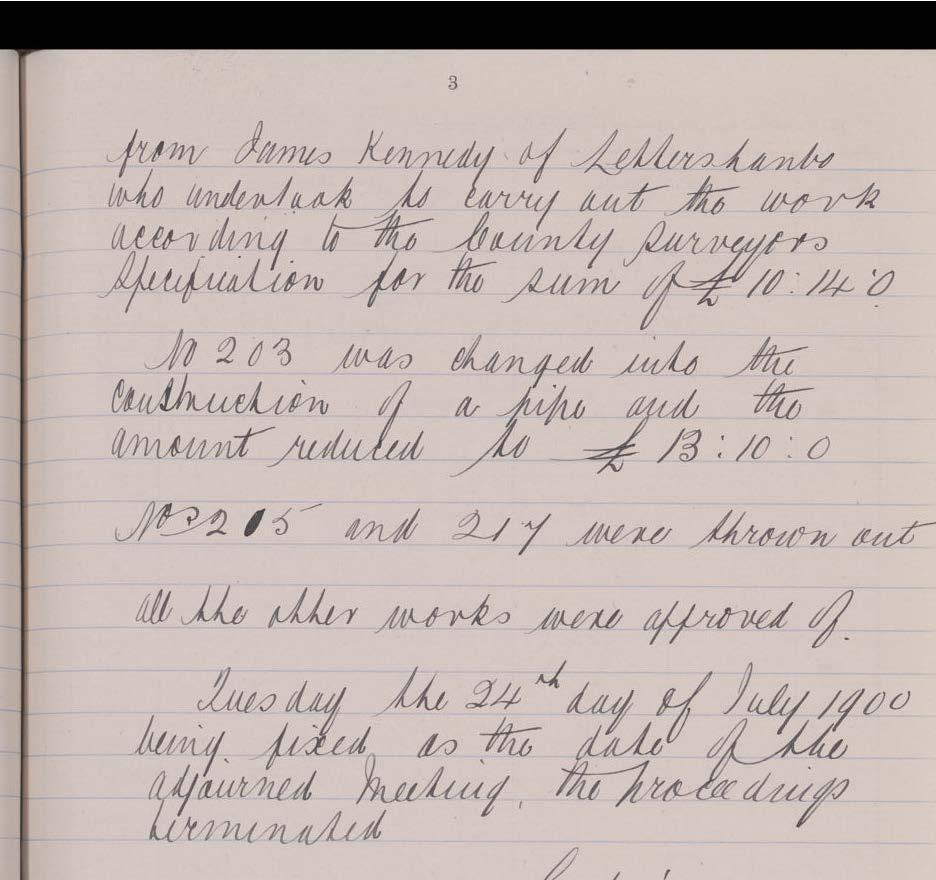 3
from James Kennedy of Lettershanbo
who undertook to carry out the work
according to the County surveyors
Specification for the sum of £ 10:14:0
No 203 was changed into the
construction of a pipe and the
amount reduced to £ 13:10:0
Nos 215 and 217 were thrown out
all the other works were approved of.
Tuesday the 24th day of July 1900
being fixed as the date of the
adjourned Meeting, the proceedings
terminated